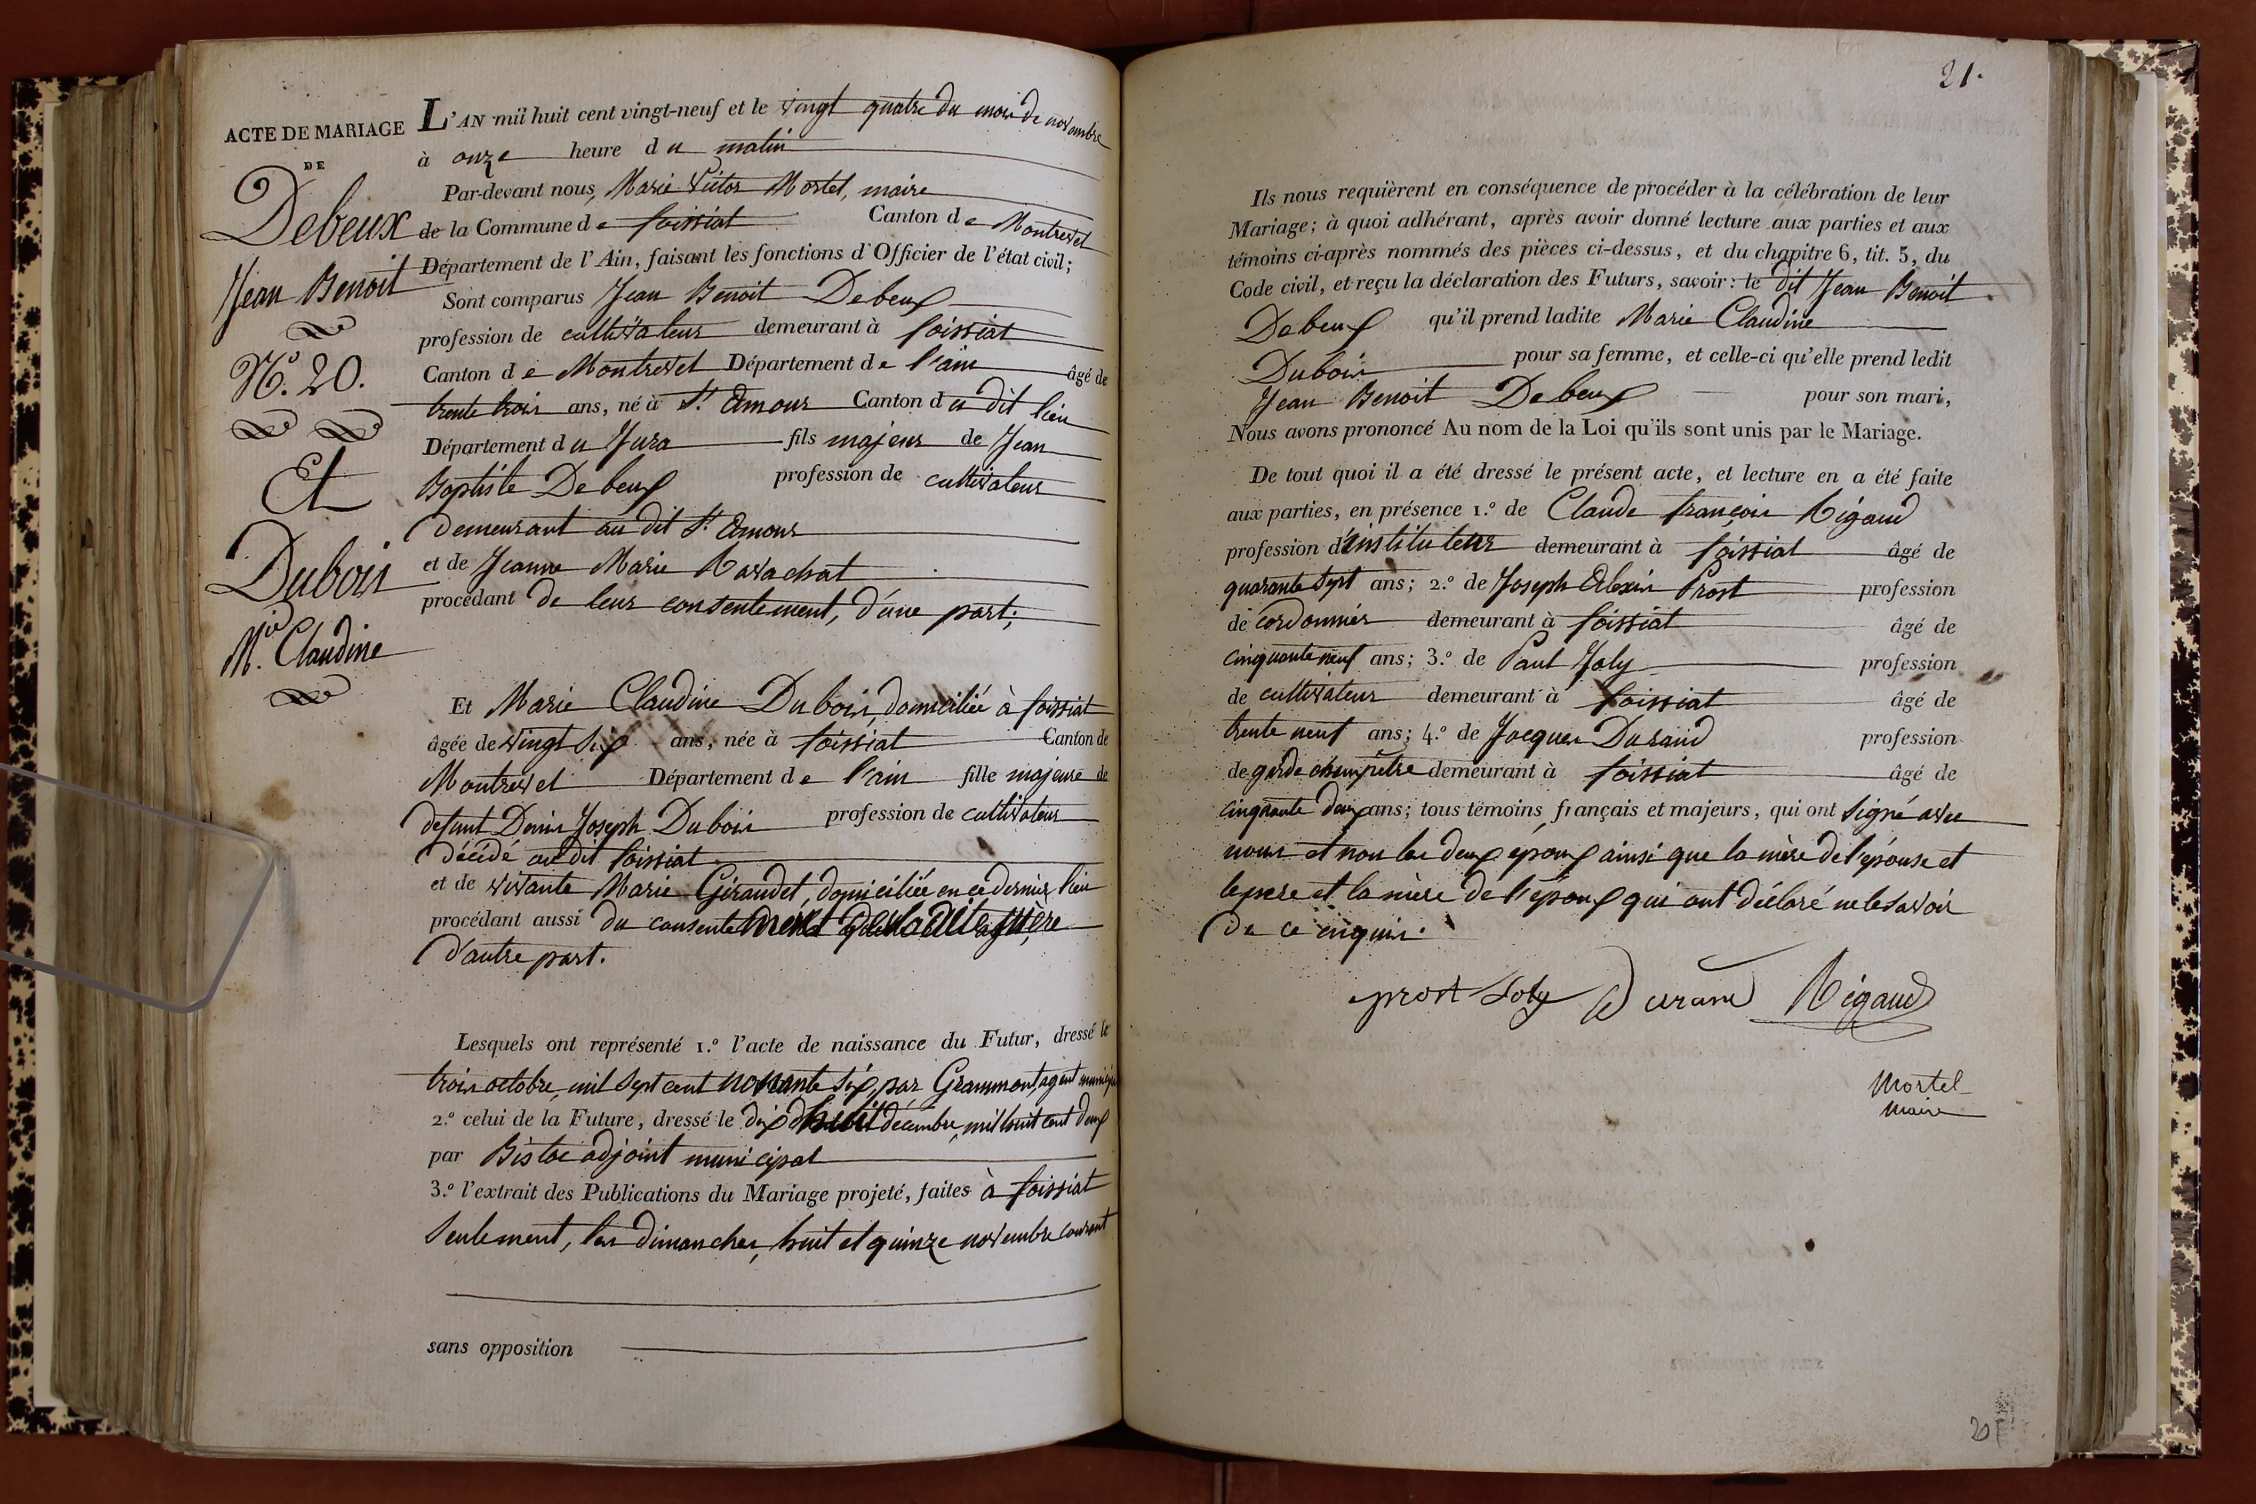 ACTE DE MARIAGE
DE
Debeux
Jean Benoit
N.° 20.
Et
Dubois
M.ie Claudine
L'AN mil huit cent vingt-neuf et le vingt quatre du mois de novembre
à onze heure du matin
Par-devant nous, Marie Victor Mortel, maire
de la Commune de foissiat Canton de Montrevel
Département de l'Ain, faisant les fonctions d'Officier de l'état civil;
Sont comparus Jean Benoit Debeux
profession de cultivateur demeurant à foissiat
Canton de Montrevel Département de l'ain âgé de
trente trois ans, né à St. Amour Canton du dit lieu
Département du Jura fils majeur de Jean
Baptiste Debeux profession de cultivateur
demeurant au dit St. Amour
et de Jeanne Marie Ravachat
procédant de leur consentement, d'une part;
Et Marie Claudine Dubois, domiciliée à foissiat
âgée de vingt six ans, née à foissiat Canton de
Montrevel Département de l'ain fille majeure de
defunt Denis Joseph Dubois profession de cultivateur
décédé au dit foissiat
et de vivante Marie Giraudet, domiciliée en ce dernier lieu
procédant aussi du consentement de la dite mère
d'autre part.
Lesquels ont représenté 1.° l'acte de naissance du Futur, dressé le
trois octobre, mil sept cent nonante six, par Grammont, agent municip
2.° celui de la Future, dressé le dix huit décembre, mil huit cent deux
par adjoint municipal
3.° l'extrait des Publications du Mariage projeté, faites à foissiat
seulement, les dimanches, huit et quinze novembre courant
sans opposition
21.
Ils nous requièrent en conséquence de procéder à la célébration de leur
Mariage; à quoi adhérant, après avoir donné lecture aux parties et aux
témoins ci-après nommés des pièces ci-dessus, et du chapitre 6, tit. 5, du
Code civil, et reçu la déclaration des Futurs, savoir: le dit Jean Benoit
Debeux qu'il prend ladite Marie Claudine
Dubois pour sa femme, et celle-ci qu'elle prend ledit
Jean Benoit Debeux pour son mari,
Nous avons prononcé Au nom de la Loi qu'ils sont unis par le Mariage.
De tout quoi il a été dressé le présent acte, et lecture en a été faite
aux parties, en présence 1.° de Claude françois Rigaud
profession d'instituteur demeurant à foissiat âgé de
quarante sept ans; 2.° de Joseph Alexis Prost profession
de cordonnier demeurant à foissiat âgé de
cinquante neuf ans; 3.° de Paul Joly profession
de cultivateur demeurant à foissiat âgé de
trente neuf ans; 4.° de Jacques Durand profession
de garde champêtre demeurant à foissiat âgé de
cinquante deux ans; tous témoins français et majeurs, qui ont signé avec
nous et non les deux époux ainsi que la mère de l'épouse et
le pere et la mère de l'époux qui ont déclaré ne le savoir
de ce enquis.
prost Joly Durand Rigaud
Mortel
Maire